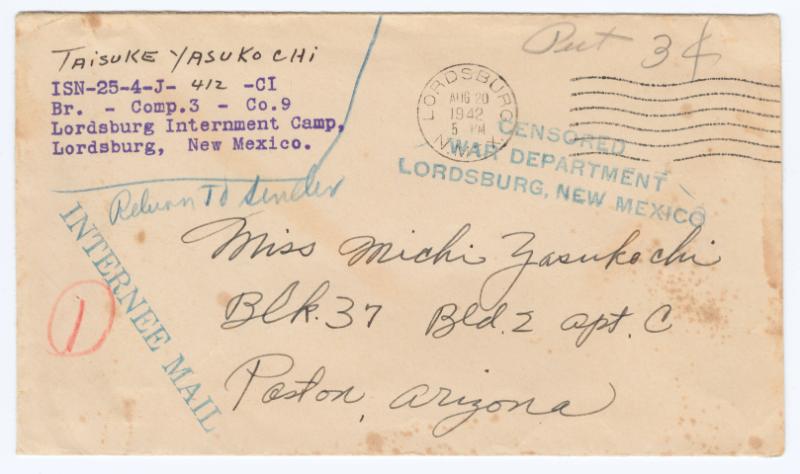 TAISUKE YASUKOCHI
ISN-25-4-J- 412 -CI
Br. - Comp.3 - Co.9
Lordsburg Internment Camp,
Lordsburg, New Mexico.
Put 3¢
LORDSBURG
AUG 20
1942
5 PM
N.MEX.
CENSORED
WAR DEPARTMENT
LORDSBURG, NEW MEXICO
Return To Sender
INTERNEE MAIL
1
Miss Michi Yasukochi
Blk. 37 Bld. 2 apt. C
Poston, Arizona